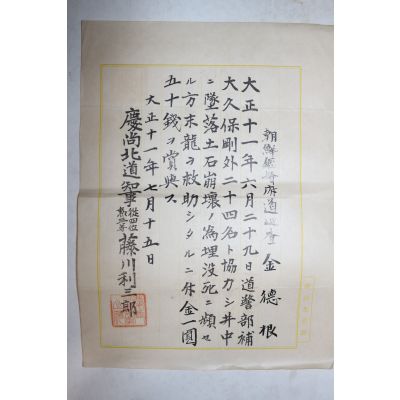 朝鮮總督府道巡査 金德根
大正十一年六月二十九日道警部補
大久保剛外二十四名ト協力シ井中
ニ墜落土石崩壊ノ為埋没死ニ頻セ
ル方末龍ヲ救助シタルニ依金一圓
五十錢ヲ賞典ス
大正十一年七月十五日
慶尚北道知事 從四位 勲三等 藤川利三郎